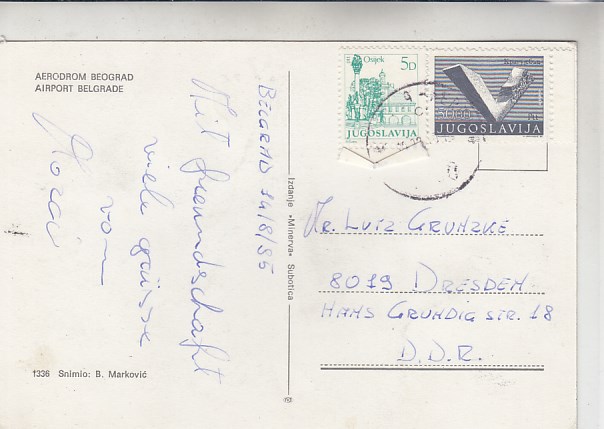 AERODROM BEOGRAD
AIRPORT BELGRADE
BELGRAD 14/8/85
Mit freundschaft
viele grüsse
vom
1336 Snimio: B. Marković
Izdanje »Minerva« Subotica
Osijek
5D
JUGOSLAVIJA
JUGOSLAVIJA
Mr. LUIZ GRUNZKE
8019 DRESDEN
HANS GRUNDIG STR. 18
D.D.R.